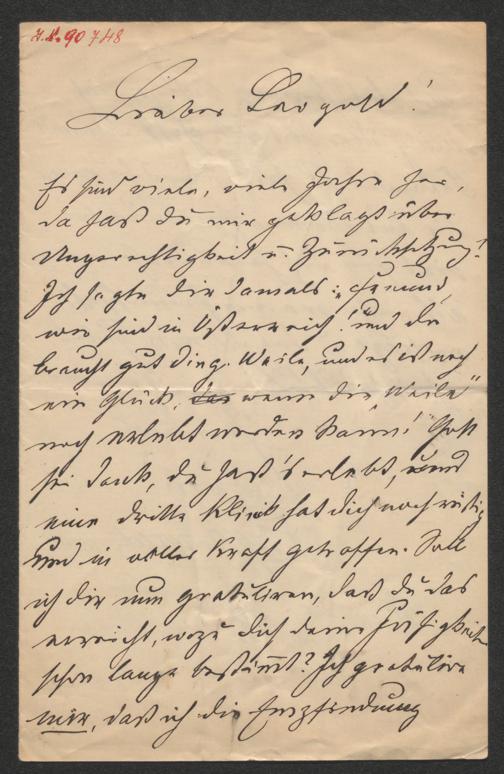 I.N. 90748
Lieber Leopold!
Es sind viele, viele Jahre her,
da hast du mir geklagt über
Ungerechtigkeit u. Zurücksetzung!
Ich sagte dir damals: „Freund,
wir sind in Österreich! und da
braucht gut Ding Weile, und es ist noch
ein Glück, das wenn die Weile“
noch erlebt werden kann! Gott
sei Dank, du hast's erlebt, und
eine dritte Klinik hat dich noch rüstig
und in voller Kraft getroffen. Soll
ich dir nun gratuliren, daß du das
erreicht, wozu dich deine Fähigkeiten
schon lange bestimmt? Ich gratulire
mir, daß ich die Empfindung